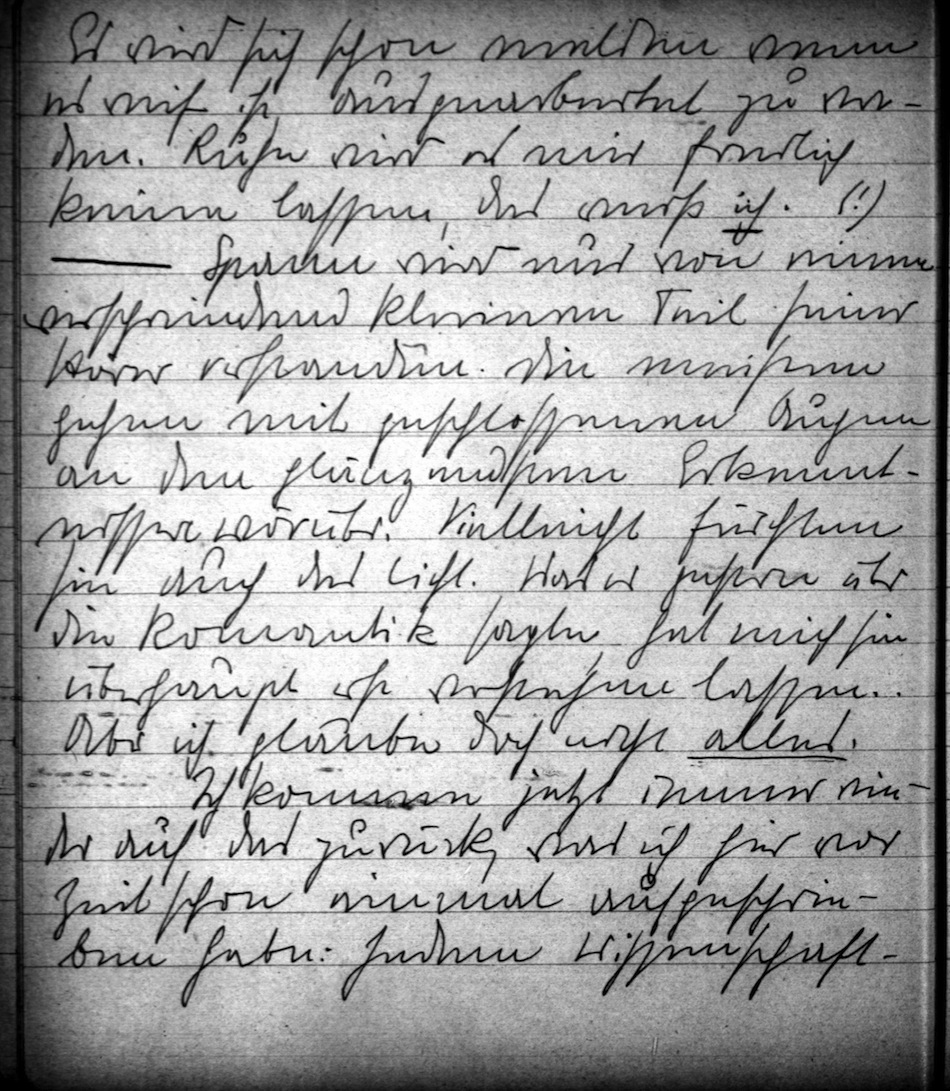 Es wird sich schon melden wenn
es reif ist, ausgearbeitet zu wer-
den. Ruhe wird es mir freilich
keine lassen, das weiß ich. (!)
— Spann wird nur von einem
verschwindend kleinen Teil seiner
Hörer verstanden. Die meisten
gehen mit geschlossenen Augen
an den glänzendsten Erkennt-
nissen vorüber. Vielleicht fürchten
sie auch das Licht. Was er gestern über
die Romantik sagte, hat mich sie
überhaupt erst verstehen lassen..
Aber ich glaube doch nicht alles.
Ich komme jetzt immer wie-
der auf das zurück, was ich hier vor
Zeit schon einmal aufgeschrie-
ben habe: Jedem Wissenschaft-